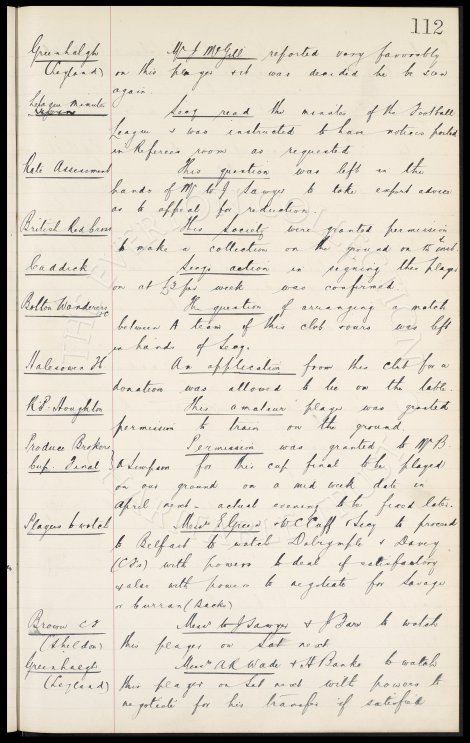 112
Greenhalgh Mr J McGill reported very favorably
(Leyland) on this player & it was decided he be seen
again.
League Minutes Secy read the minutes of the Football
League & was instructed to have notices posted
in Referees room as requested
Rate Assessment This question was left in the
hands of Mr W J Sawyer to take expert advice
as to appeal for reduction.
British Red Cross This society were granted permission
to make a collection on the ground on inst
Caddick Secys action in signing this player
on at £2 per week was confirmed
Bolton Wanderers The question of arranging a match
between A team of this club & ours was left
in hands of Secy.
Halesowen An application from this club for a
donation was allowed to lie on the table.
Houghton This amateur player was granted
permission to train on the ground.
Produce Brokers Permission was granted to Mr B.
Cup. Final A Simpson for this cup final to be played
on our ground on a mid week date in
April next - actual evening to be fixed later.
Players to watch Messrs E Green & W C Cuff & Secy to proceed
to Belfast to watch Dalrymple & Davey
with powers to deal if satisfactory
& also with powers to negotiate for Savage
or Curran (Backs)
Brown Messrs W J Sawyer & J Baw to watch
(Shildon) this player on Sat next
Greenhalgh Messrs A R Wade & H Banks to watch
(Leyland) this player on Sat next with powers to
negotiate for his transfer if satisfied